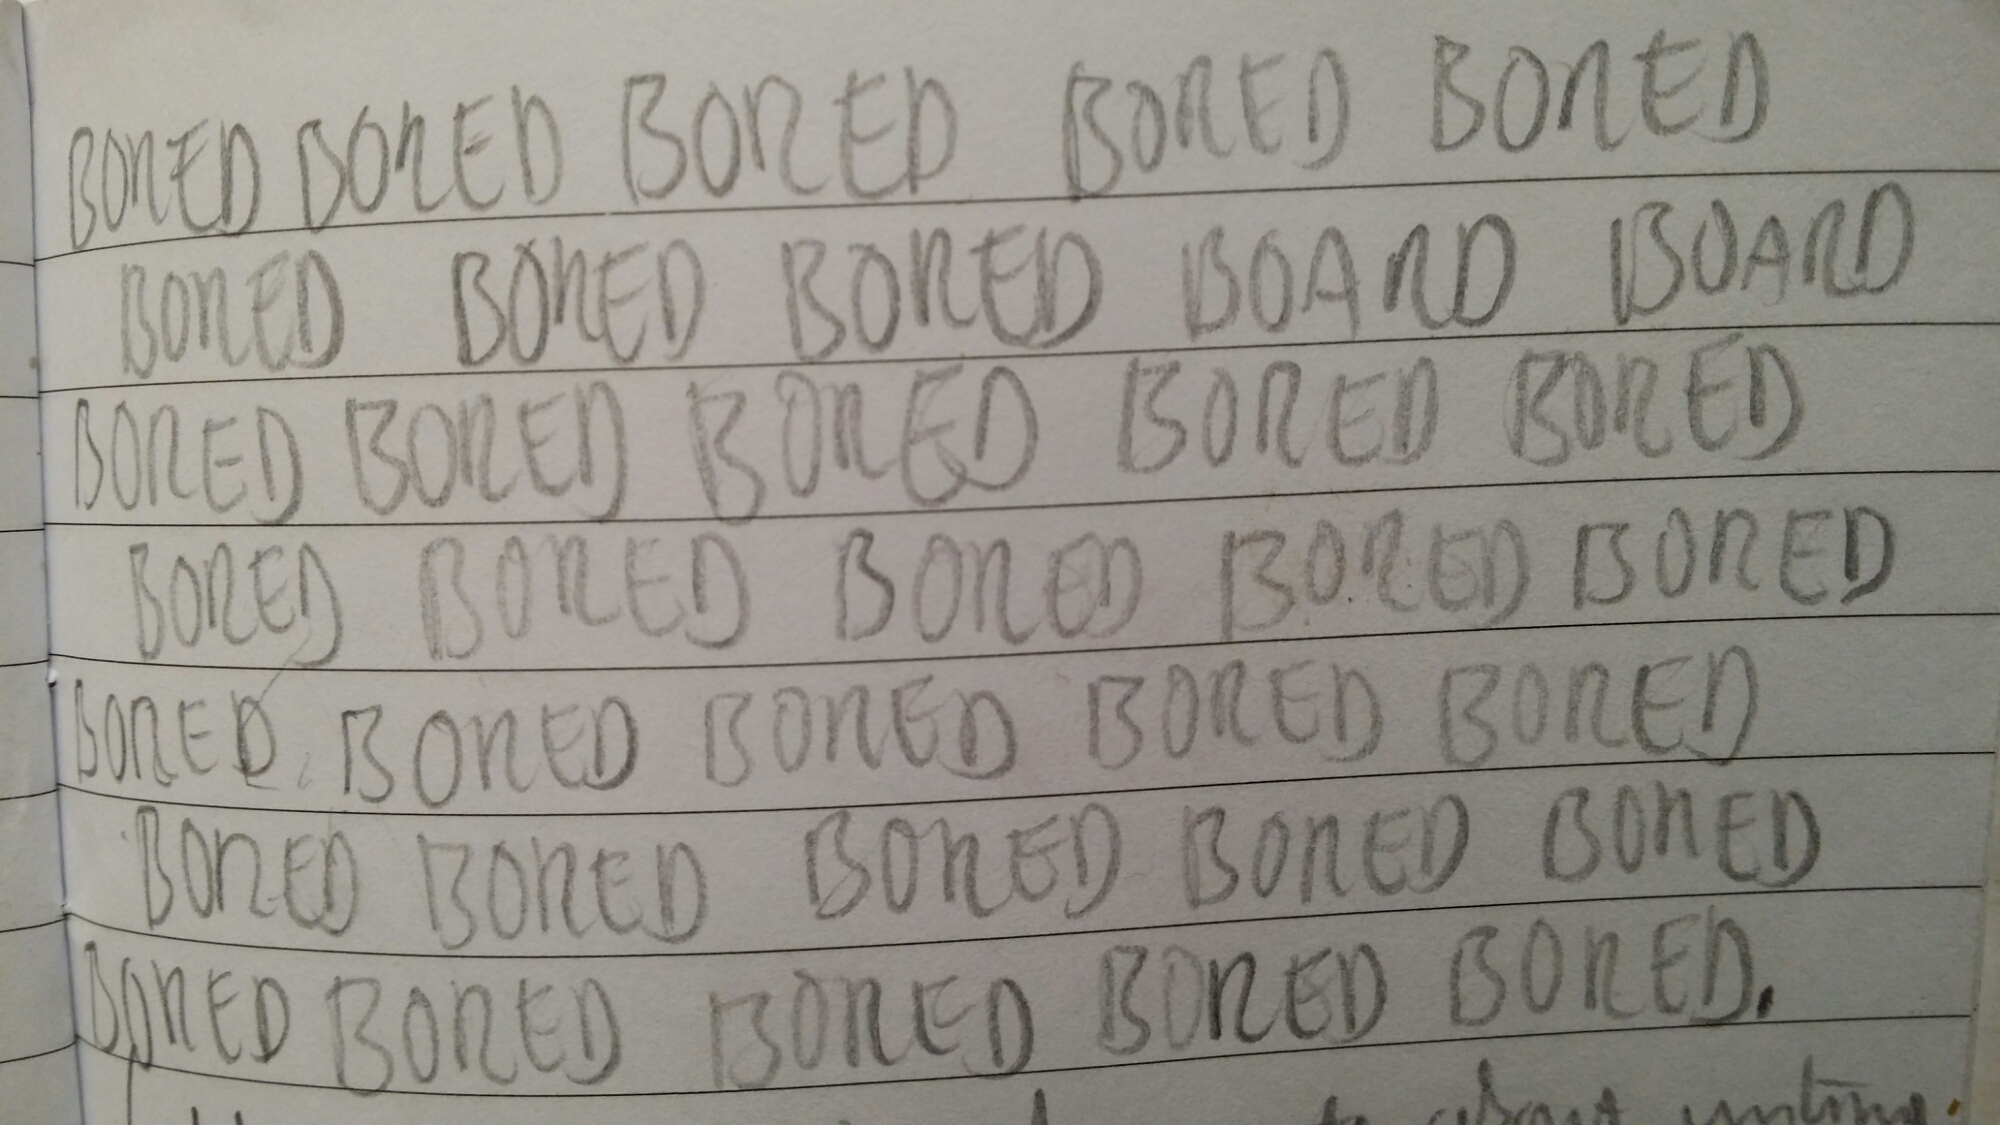 BORED BORED BORED BORED BORED
BORED BORED BORED BOARD BOARD
BORED BORED BORED BORED BORED
BORED BORED BORED BORED BORED
BORED BORED BORED BORED BORED
BORED BORED BORED BORED BORED
BORED BORED BORED BORED BORED.
about writing